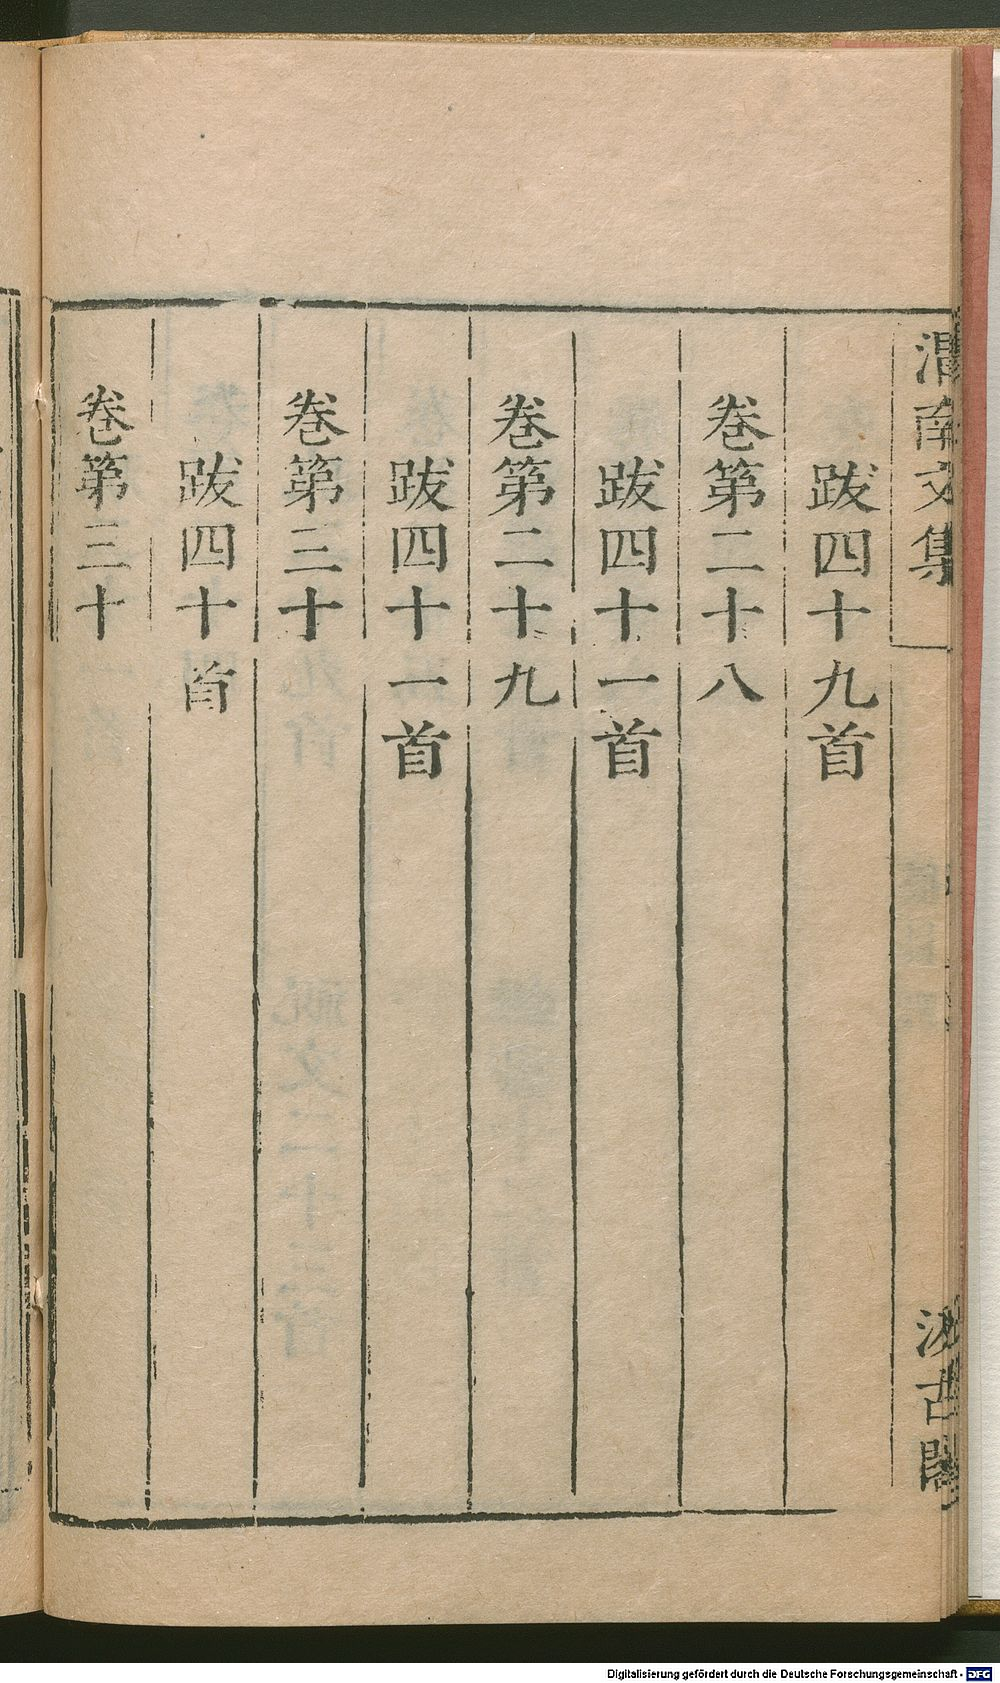 渭南文集
汲古閣
跋四十九首
卷第二十八
跋四十一首
卷第二十九
跋四十一首
卷第三十
跋四十首
卷第三十
Digitalisierung gefördert durch die Deutsche Forschungsgemeinschaft - DFG